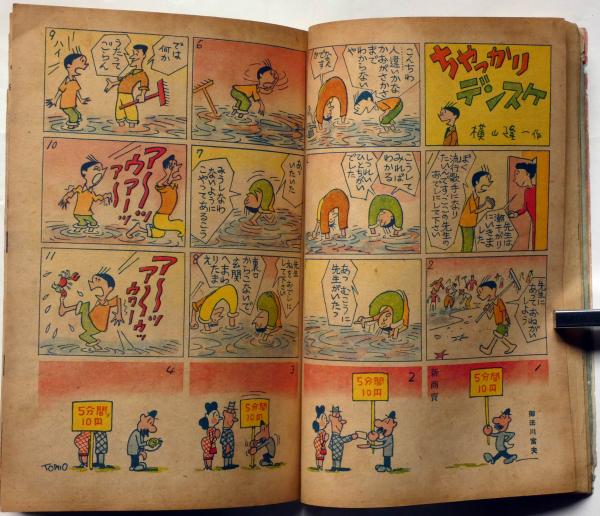 ちゃっかり
デンスケ
横山隆一作
先生は
潮干がり
にいきま
した
ぼく
流行歌手になり
たいんです ここの先生の
おでしにして下さい
2
先生に
あって おねがい
しよう
こんちわ
人違いかな
かおがさかさ
まで
わからない
や
なん
かです
こうして
みれば
わかる
しつれい
ひとちがい
でした
あっ むこうに
先生がいたっ
6
7
あ
いたいた
みうしなわ
ないように
こやってあるこう
8
先生
私をおでしに
して下さい
裏口
からこないで
玄関
へまわ
りたまえ
9
では
何か
うたって
ごらん
ハイ
10
ア〜ッ
ウァアーッ
ア〜ッ
11
ア〜ッ
ア〜ウッ
ウワー
新商賣
御法川富夫
1
5分間
10円
2
5分間
10円
3
5分間
10円
4
5分間
10円
TOMIO